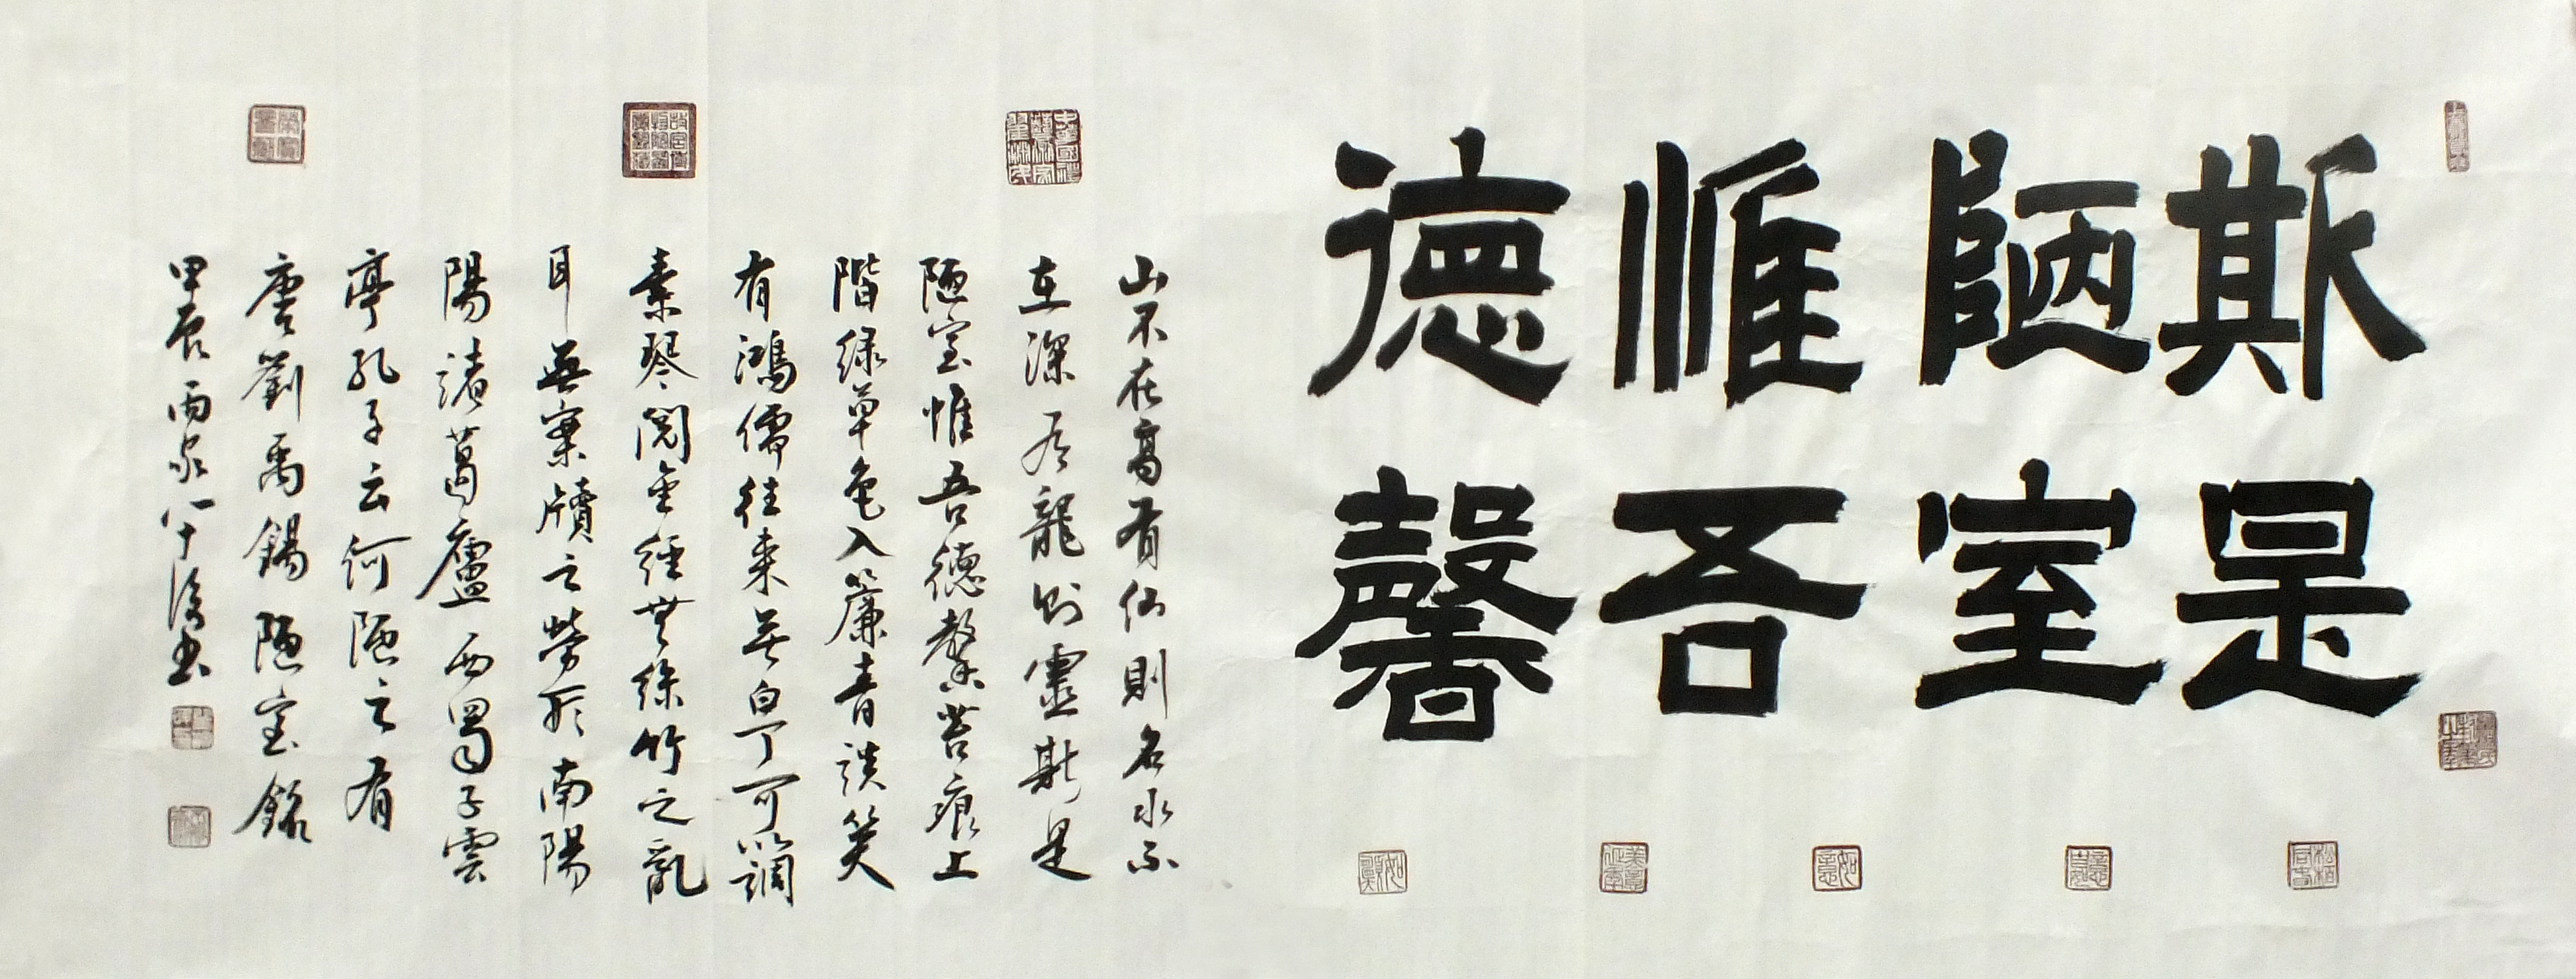 斯是
陋室
惟吾
德馨
山不在高有仙則名水不
在深有龍則靈斯是
陋室惟吾德馨苔痕上
階緑草色入簾青談笑
有鴻儒往来無白丁可以調
素琴閲金經無絲竹之亂
耳無案牘之勞形南陽
陽諸葛廬西蜀子雲
亭孔子云何陋之有
唐劉禹錫陋室銘
甲辰雨泉八十後書
松柏同春
如意
美意延年